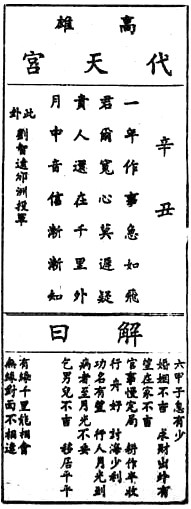 高雄
代天宮
辛丑
一年作事急如飛
君爾寬心莫遲疑
貴人還在千里外
月中音信漸漸知
此卦 劉智遠邠洲投軍
解曰
六甲子息有少
婚姻不吉 求財出外有
在家不吉
官事慢完局 耕作半收
行舟好 討海少利
功名有望 行人月光到
病者至月光不妥
乞男兒不吉 移居平平
有緣千里能相會
無緣對面不相逢